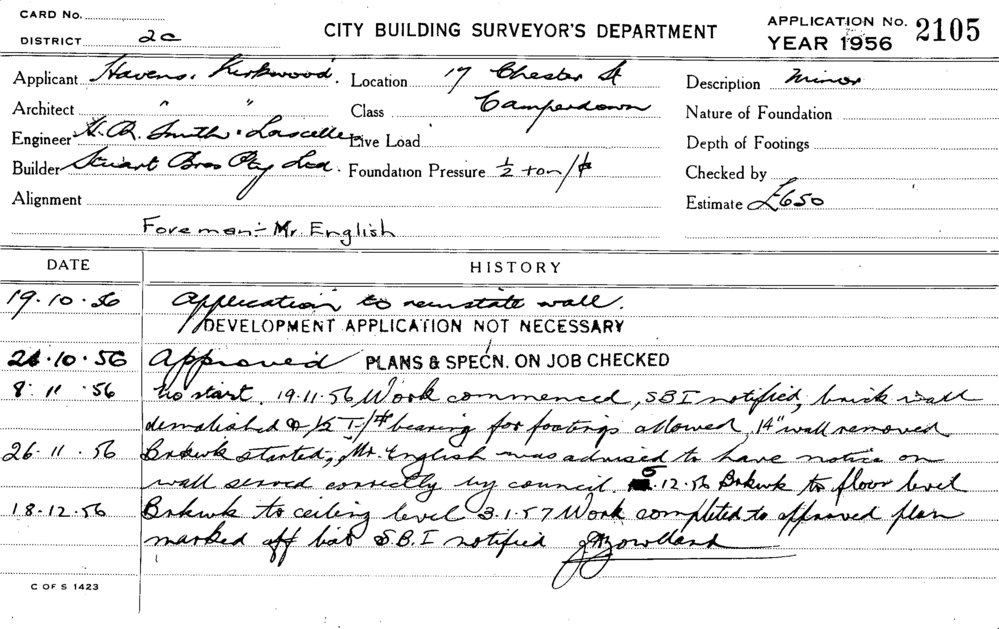 CARD No.
DISTRICT 2c
CITY BUILDING SURVEYOR'S DEPARTMENT
APPLICATION No. 2105
YEAR 1956
Applicant Havens. Kirkwood. Location 17 Chester St Description Minor
Architect " " Class Camperdown Nature of Foundation
Engineer H. R. Smith. Lascelles Live Load Depth of Footings
Builder Stuart Bros Pty Ltd. Foundation Pressure ½ ton/ Checked by
Alignment Estimate £650
Foreman:- Mr. English
DATE HISTORY
19.10.56 Application to reinstate wall.
DEVELOPMENT APPLICATION NOT NECESSARY
10.56 Approved PLANS & SPECN. ON JOB CHECKED
8.11.56 No start. 19.11.56 Work commenced, SBI notified, brick wall
demolished & ½ T/ bearing for footings allowed, 14" wall removed
26.11.56 Brkwk started, Mr. English was advised to have notice on
wall served correctly by council. 5.12.56 Brkwk to floor level
18.12.56 Brkwk to ceiling level 3.1.57 Work completed to approved plan
marked off S.B.I notified
C OF S 1423